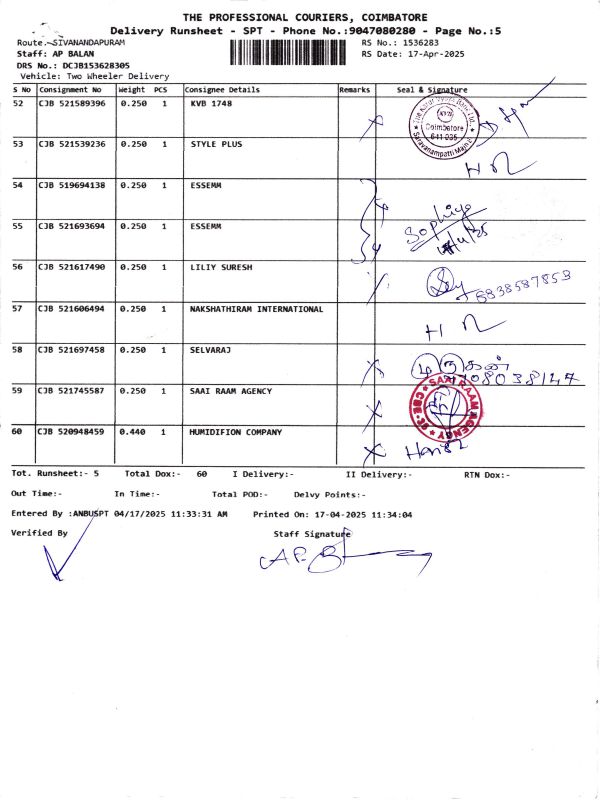 THE PROFESSIONAL COURIERS, COIMBATORE
Delivery Runsheet - SPT - Phone No.:9047080280 - Page No.:5
Route.-SIVANANDAPURAM RS No.: 1536283
Staff: AP BALAN RS Date: 17-Apr-2025
DRS No.: DCJB153628305
Vehicle: Two Wheeler Delivery
S No Consignment No Weight PCS Consignee Details Remarks Seal & Signature
52 CJB 521589396 0.250 1 KVB 1748
Coimbatore
641 035
Saravanampatti
53 CJB 521539236 0.250 1 STYLE PLUS
54 CJB 519694138 0.250 1 ESSEMM
55 CJB 521693694 0.250 1 ESSEMM Sophiya
56 CJB 521617490 0.250 1 LILIY SURESH 6838587853
57 CJB 521606494 0.250 1 NAKSHATHIRAM INTERNATIONAL
58 CJB 521697458 0.250 1 SELVARAJ
59 CJB 521745587 0.250 1 SAAI RAAM AGENCY SAAI RAAM AGENCY
60 CJB 520948459 0.440 1 HUMIDIFION COMPANY
Tot. Runsheet:- 5 Total Dox:- 60 I Delivery:- II Delivery:- RTN Dox:-
Out Time:- In Time:- Total POD:- Delvy Points:-
Entered By :ANBUSPT 04/17/2025 11:33:31 AM Printed On: 17-04-2025 11:34:04
Verified By Staff Signature